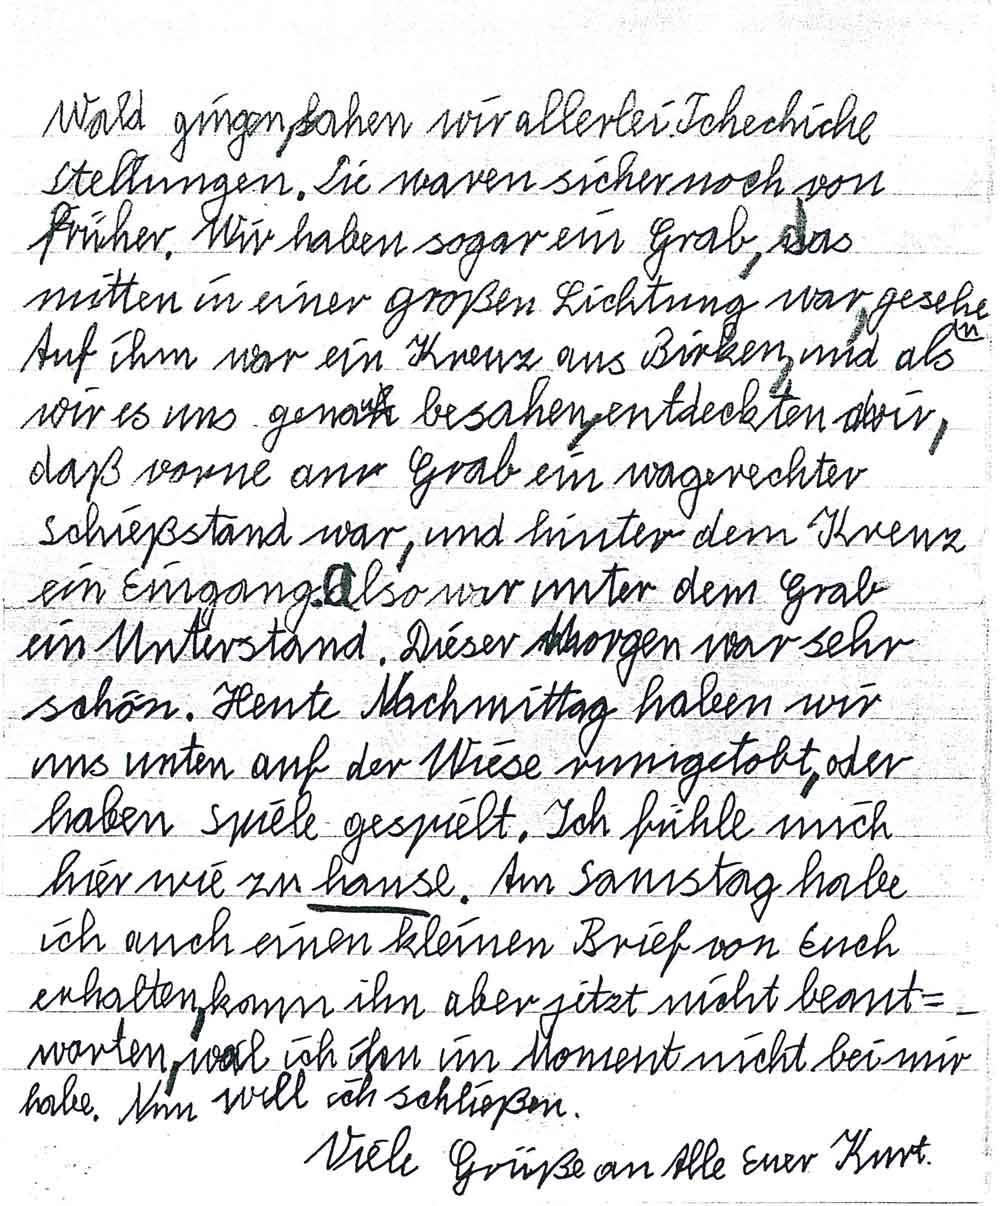 Wald gingen, sahen wir allerlei Tchechiche
Stellungen. Sie waren sicher noch von
früher. Wir haben sogar ein Grab, das
mitten in einer großen Lichtung war, gesehe
n
Auf ihm war ein Kreuz aus Birken, und als
wir es uns genau besahen, entdeckten wir,
daß vorne am Grab ein wagerechter
Schießstand war, und hinter dem Kreuz
ein Eingang. Also war unter dem Grab
ein Unterstand. Dieser Morgen war sehr
schön. Heute Nachmittag haben wir
uns unten auf der Wiese rumgetobt, oder
haben Spiele gespielt. Ich fühle mich
hier wie zu hause. Am Samstag habe
ich auch einen kleinen Brief von Euch
erhalten, kann ihn aber jetzt nicht beant=
worten, weil ich ihn im Moment nicht bei mir
habe. Nun will ich schließen.
Viele Grüße an Alle Euer Kurt.